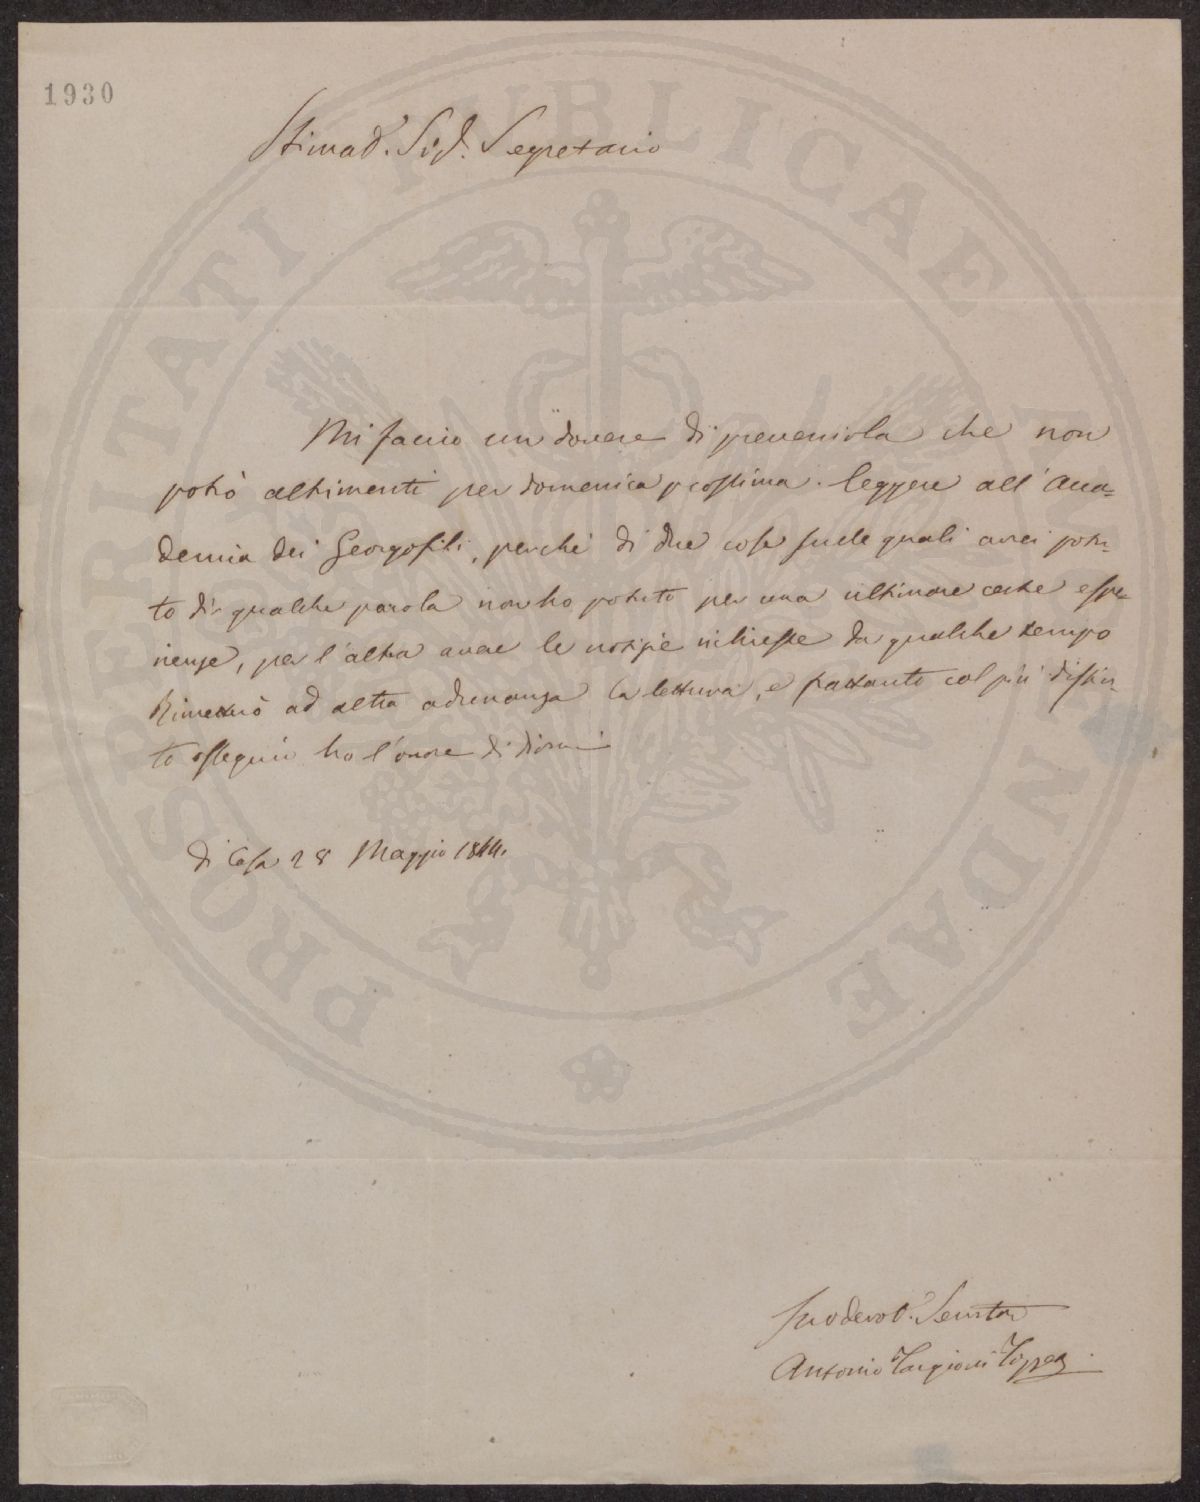 1930
Stimad. Sig. Segretario
Mi faccio un dovere di prevenirla che non
potrò altrimenti per domenica prossima leggere all'Acca=
demia dei Georgofili, perchè di due cose sulle quali avrei potu-
to dir qualche parola non ho potuto per una ultimare certe espe-
rienze, per l'altra avere le notizie richieste da qualche tempo
Rimetterò ad altra adunanza la lettura, e frattanto col più distin-
to ossequio ho l'onore di dirmi
di Casa 28 Maggio 1844.
Suo devot. Servitore
Antonio Targioni Tozzetti
PROSPERITATI PUBLICAE AUGENDAE